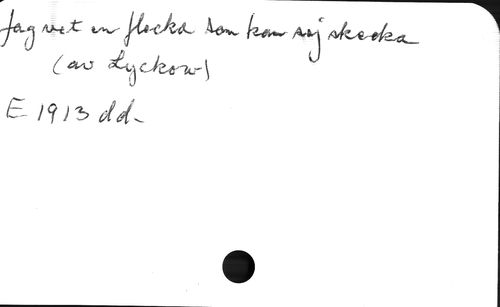 Jag vet en flocka som kan sej skocka
(av Lyckow)
E 1913 dd-